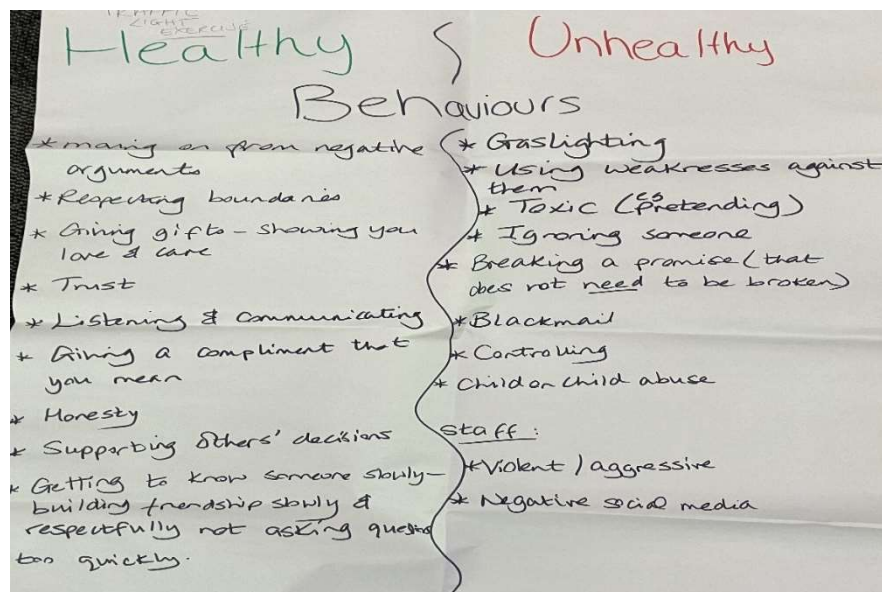 TRAFFIC
LIGHT
EXERCISE
Healthy
Unhealthy
Behaviours
* moving on from negative
arguments
* Respecting boundaries
* Giving gifts – showing you
love & care
* Trust
* Listening & communicating
* Giving a compliment that
you mean
* Honesty
* Supporting others' decisions
* Getting to know someone slowly –
building friendship slowly &
respectfully not asking
too quickly.
* Gaslighting
* Using weaknesses against
them
* Toxic (pretending)
* Ignoring someone
* Breaking a promise (that
does not need to be broken)
* Blackmail
* Controlling
* Child on child abuse
Staff:
* Violent / aggressive
* Negative social media